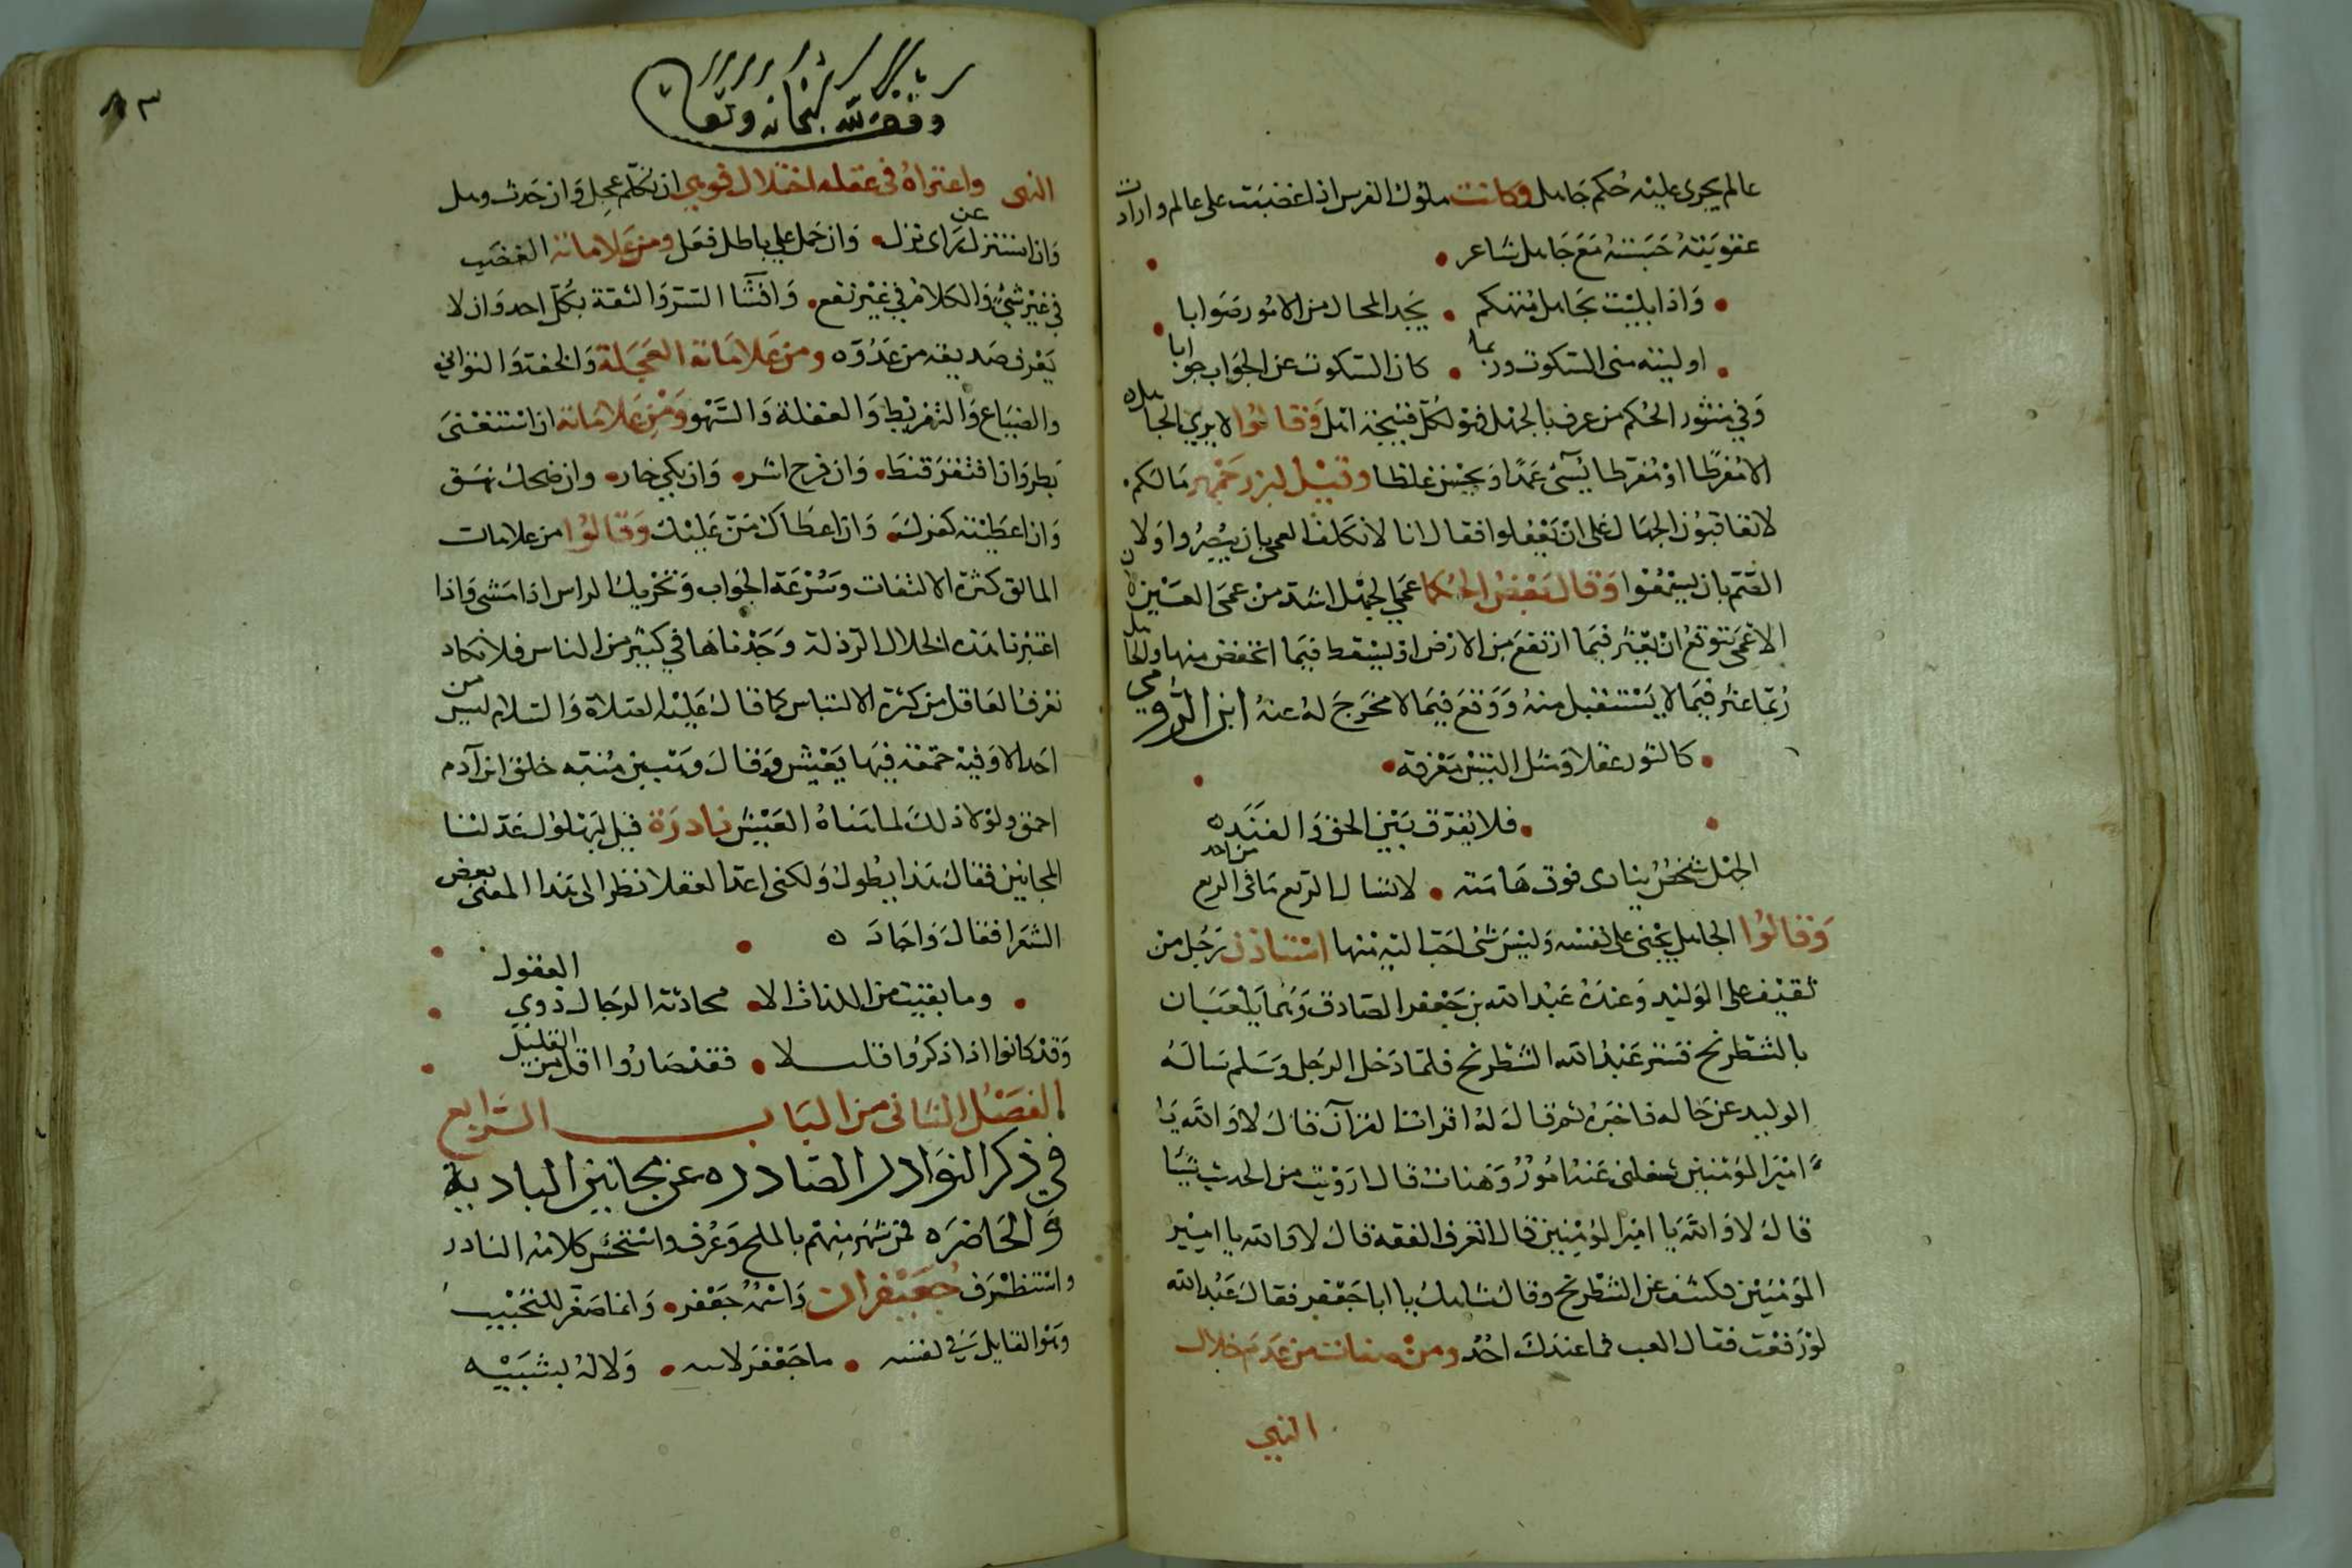 عالم يجرى عليه حكم جاهل وكانت ملوك الفرس اذا غضبت على عالم وارادت
عقوبته حبسته مع جاهل شاعر
واذا بليت بجاهل متهكم • يجد المحال من الامور صوابا
اوليته منى السكوت وربما • كان السكوت عن الجواب جوابا
وفي منثور الحكم من عرف بالجهل فهو لكل قبيحة اهل وقالوا لا يري الجاهل
الا مفرطا او مفرطا يسئ عمدا ويحسن غلطا وقيل لبزرجمهر ما لكم
لا تعاقبون الجهال على ان يعقلوا فقال انا لا نكلف العمى بان يبصروا ولا
الصم بان يسمعوا وقال بعض الحكما عمى الجهل اشد من عمى العين لان
الاعمى يتوقع ان يعثر فيما ارتفع من الارض او يسقط فيما انخفض منها والجاهل
ربما عثر فيما لا يستقيل منه ووقع فيما لا مخرج له عنه ابن الرومي
كالثور عقلا ومثل التيس معرفة
فلا يفرق بين الحق والفند
الجهل شخص ينادى فوق هامته • لا تسال الربع ما فى الربع من احد
وقالوا الجاهل يجنى على نفسه وليس شى احب اليه منها استاذن رجل من
ثقيف على الوليد وعنده عبد الله بن جعفر الصادق وهما يلعبان
بالشطرنج فستر عبد الله الشطرنج فلما دخل الرجل وسلم ساله
الوليد عن حاله فاخبره ثم قال له اقرات القرآن قال لا والله يا
امير المؤمنين شغلنى عنه امور وهنات قال ارويت من الحديث شيئا
قال لا والله يا امير المؤمنين قال اتعرف الفقه قال لا والله يا امير
المؤمنين فكشف عن الشطرنج وقال شاهك يا ابا جعفر فقال عبد الله
لو رفعت فقال العب فما عندك احد ومن صفات من عدم خلال
النهي
وقف لله سبحانه وتعالى
٨٣
النهى واعتراه فى عقله اختلال قوي ان تكلم عجل وان حدث وهل
وان استنزل عن راى نزل • وان حمل علي باطل فعل ومن علاماته الغضب
في غير شئ والكلام في غير نفع • وافشا السر والثقة بكل احد وان لا
يعرف صديقه من عدوه ومن علاماته العجلة والخفة والتواني
والضياع والتفريط والغفلة والسهو ومن علاماته ان استغنى
بطر وان افتقر قنط • وان فرح اشر • وان بكي خار • وان ضحك نهق
وان اعطيته كفرك • وان اعطاك من عليك وقالوا من علامات
المالق كثرة الالتفات وسرعة الجواب وتحريك الراس اذا مشى واذا
اعتبرنا هذه الخلال الرذلة وجدناها في كثير من الناس فلا نكاد
نعرف العاقل من كثرة الالتباس كما قال عليه الصلاة والسلام ليس من
احد الا وفيه حمقة فيها يعيش وقال وهب بن منبه خلق ابن آدم
احمق ولولا ذلك لما هناه العيش نادرة قيل لبهلول عد لنا
المجانين فقال هذا يطول ولكنى اعد العقلا نظر الى هذا المعنى بعض
الشعرا فقال واجاد
وما بقيت من اللذات الا • محادثة الرجال ذوي العقول
وقد كانوا اذا ذكروا قليلا • فقد صاروا اقل من القليل
الفصل الثانى من الباب الرابع
في ذكر النوادر الصادره عن مجانين البادية
والحاضره فمن شهر منهم بالملح وعرف واستحسن كلامه النادر
واستظرف جعيفران واسمه جعفر • وانما صغر للتحبيب
وهو القايل في نفسه • ما جعفر لابيه • ولا له بشبيه